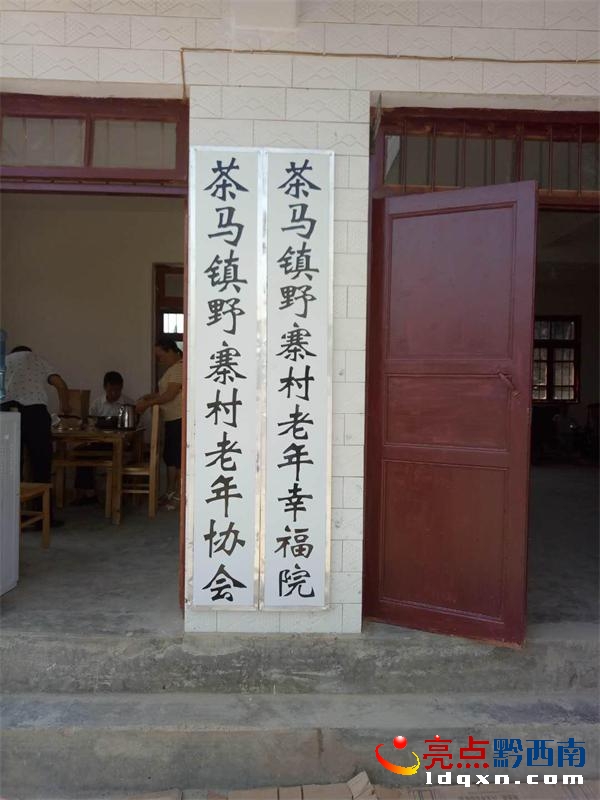 茶马镇野寨村老年协会
茶马镇野寨村老年幸福院
亮点黔西南
ldqxn.com